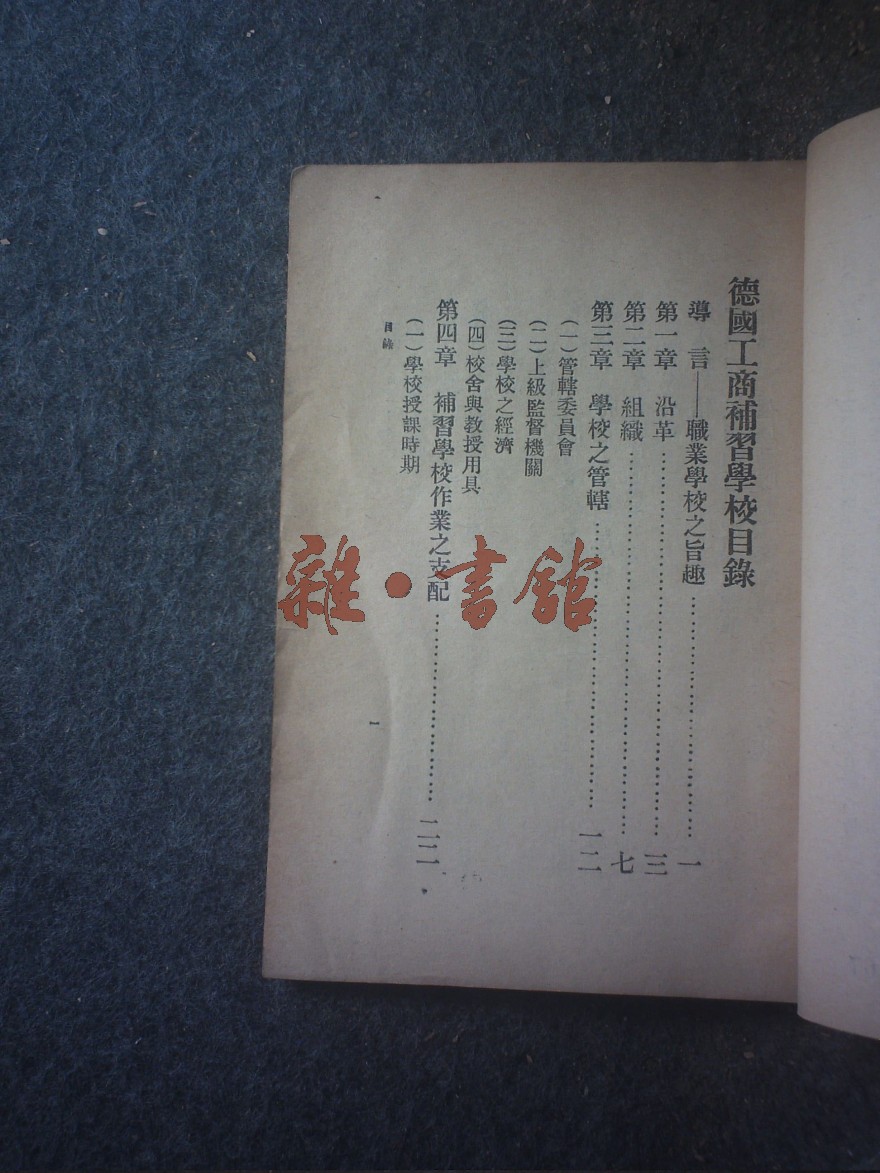 德國工商補習學校目錄
導言——職業學校之旨趣……………………一
第一章 沿革……………………三
第二章 組織……………………七
第三章 學校之管轄……………………一二
(一)管轄委員會
(二)上級監督機關
(三)學校之經濟
(四)校舍與教授用具
第四章 補習學校作業之支配……………………二二
(一)學校授課時期
目錄
一
雜·書館